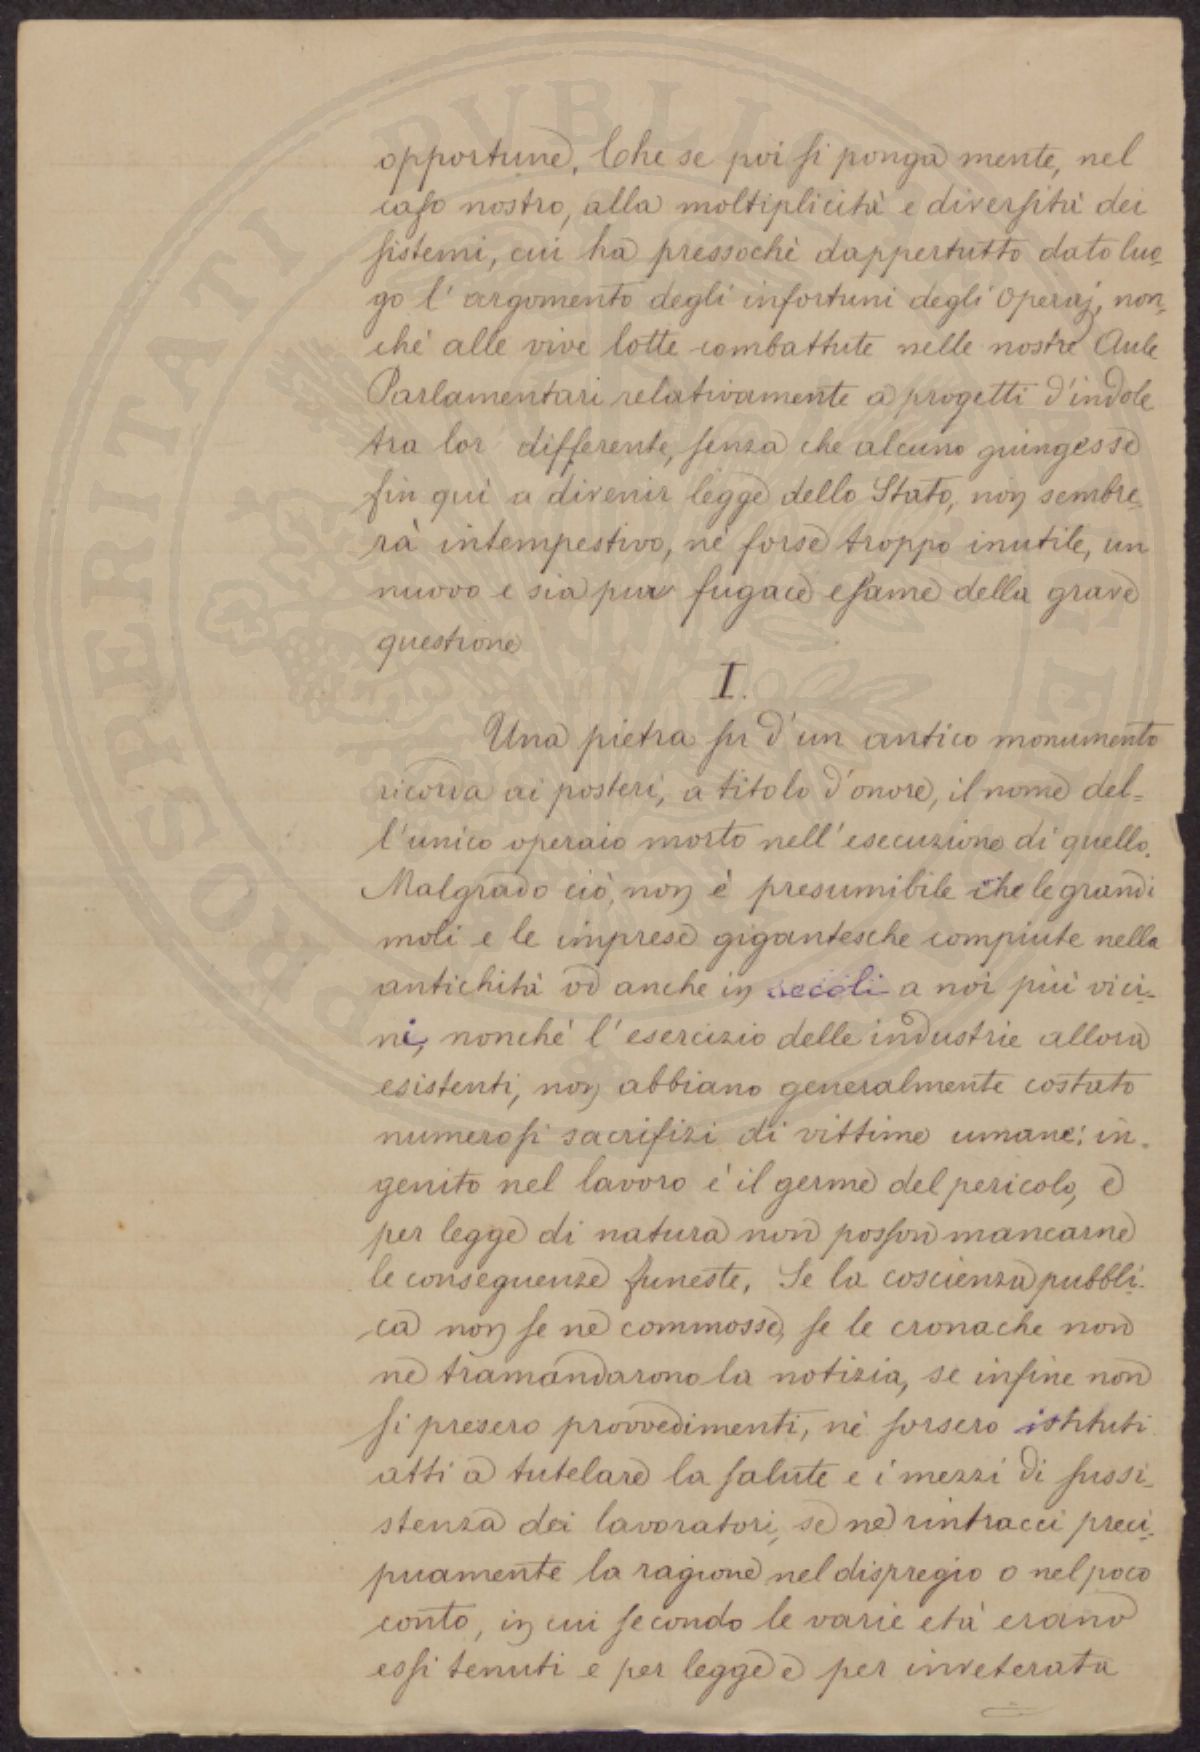 opportune. Che se poi si ponga mente, nel
caso nostro, alla moltiplicità e diversità dei
sistemi, cui ha pressochè dappertutto dato luo-
go l'argomento degli infortuni degli operaj, non-
chè alle vive lotte combattute nelle nostre Aule
Parlamentari relativamente a progetti d'indole
tra lor differente, senza che alcuno giungesse
fin qui a divenir legge dello Stato, non sembre-
rà intempestivo, nè forse troppo inutile, un
nuovo e sia pur fugace esame della grave
questione
I.
Una pietra su d'un antico monumento
ricorda ai posteri, a titolo d'onore, il nome del=
l'unico operaio morto nell'esecuzione di quello.
Malgrado ciò, non è presumibile che le grandi
moli e le imprese gigantesche compiute nella
antichità od anche in secoli a noi più vici-
ni, nonchè l'esercizio delle industrie allora
esistenti, non abbiano generalmente costato
numerosi sacrifizi di vittime umane: in-
genito nel lavoro è il germe del pericolo, e
per legge di natura non posson mancarne
le conseguenze funeste. Se la coscienza pubbli-
ca non se ne commosse, se le cronache non
ne tramandarono la notizia, se infine non
si presero provvedimenti, nè sorsero istituti
atti a tutelare la salute e i mezzi di sussi-
stenza dei lavoratori, se ne rintracci preci-
puamente la ragione nel dispregio o nel poco
conto, in cui secondo le varie età erano
essi tenuti e per legge e per inveterata
PROSPERITATI PVBLICAE